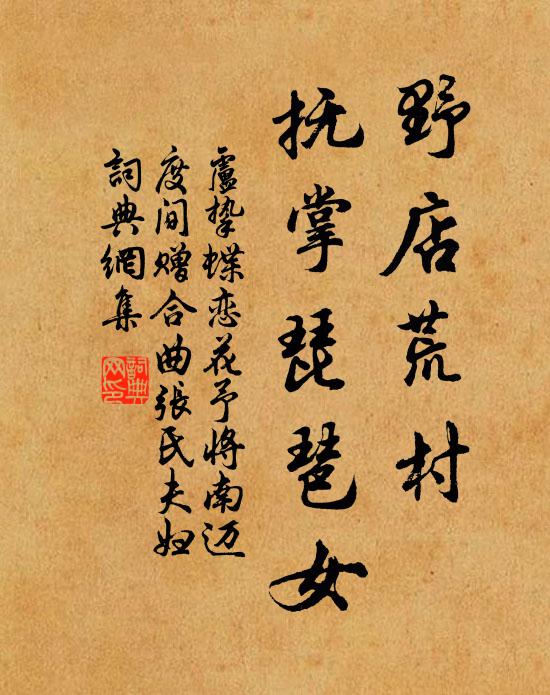 野店荒村
抚掌琵琶女
盧挚蝶恋花予将南迈
度间赠合曲張氏夫妇
詞典網集
詞典网印